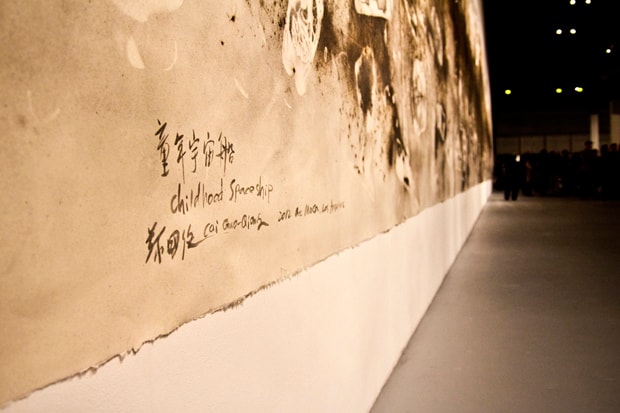 童年宇宙船
childhood Spaceship
蔡国强 Cai Guo-Qiang 2012 at MoCA Los Angeles